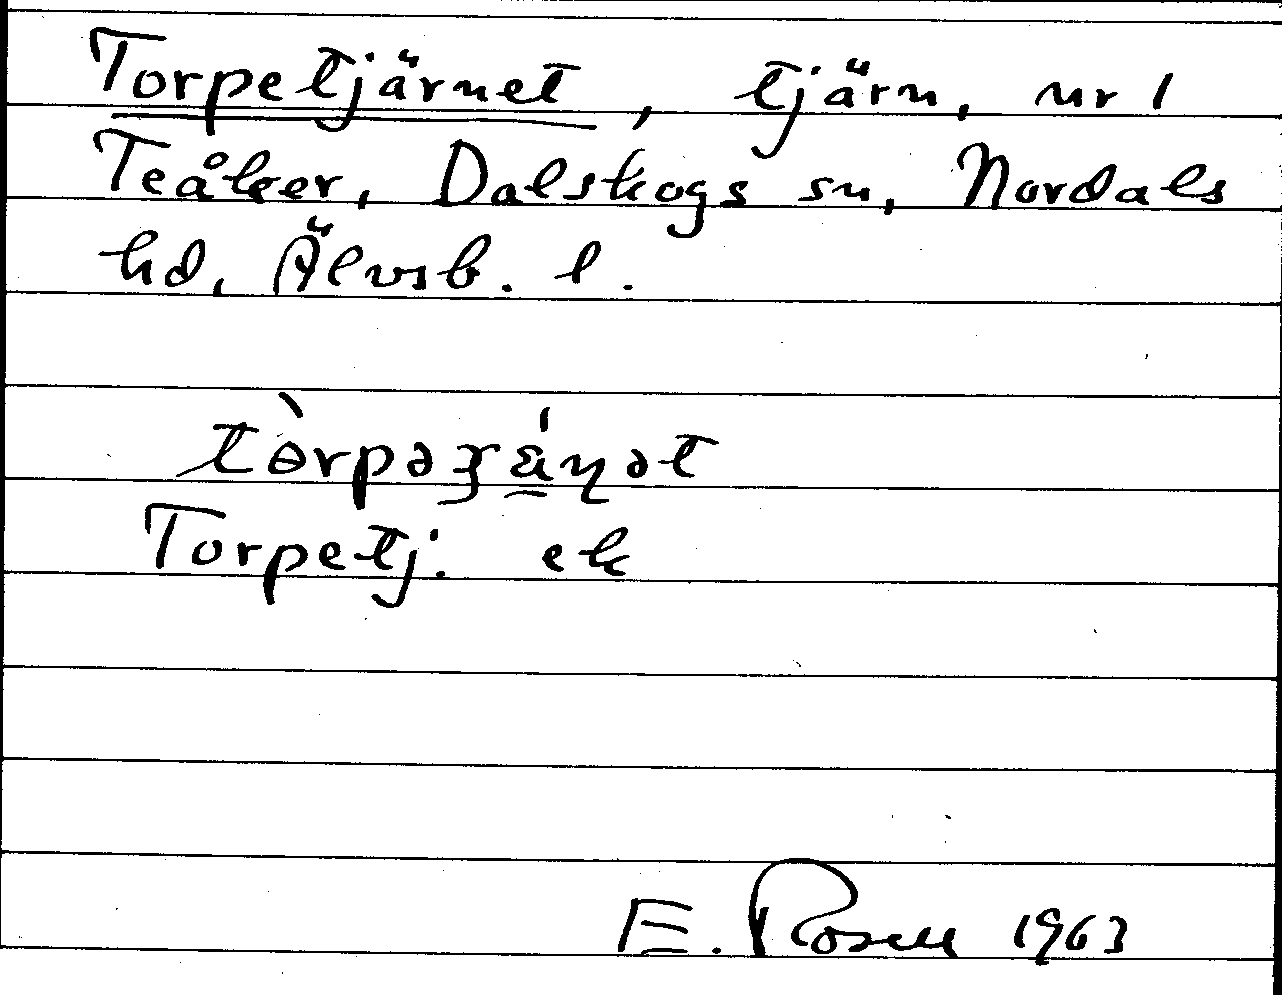 Torpetjärnet, tjärn, nr 1
Teåker, Dalskogs sn, Nordals
hd, Älvsb. l.
Torpetj. ek
E. Rosell 1963